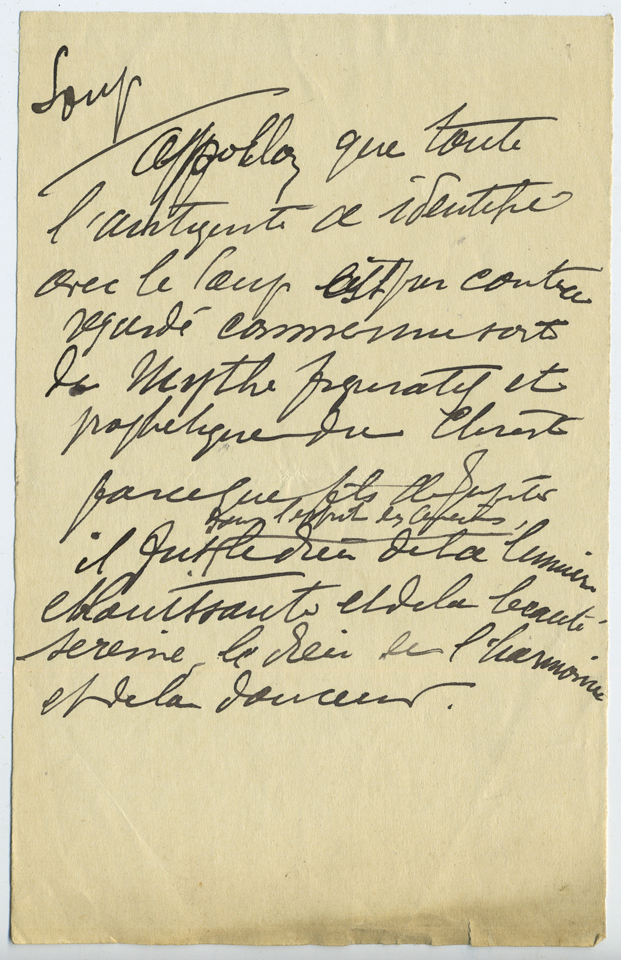 Loup
Appollon que toute
l'antiquité a identifié
avec le Loup est par contre
regardé comme une sorte
de Mythe figuratif et
prophetique du Christ
parce que fils de Jupiter
dans l'esprit des
il fut le dieu de la lumière
eblouissante et de la beauté
sereine, le dieu de l'harmonie
et de la douceur.